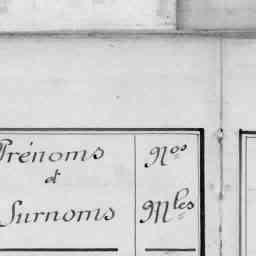 Prénoms Nos
et
Surnoms Mles